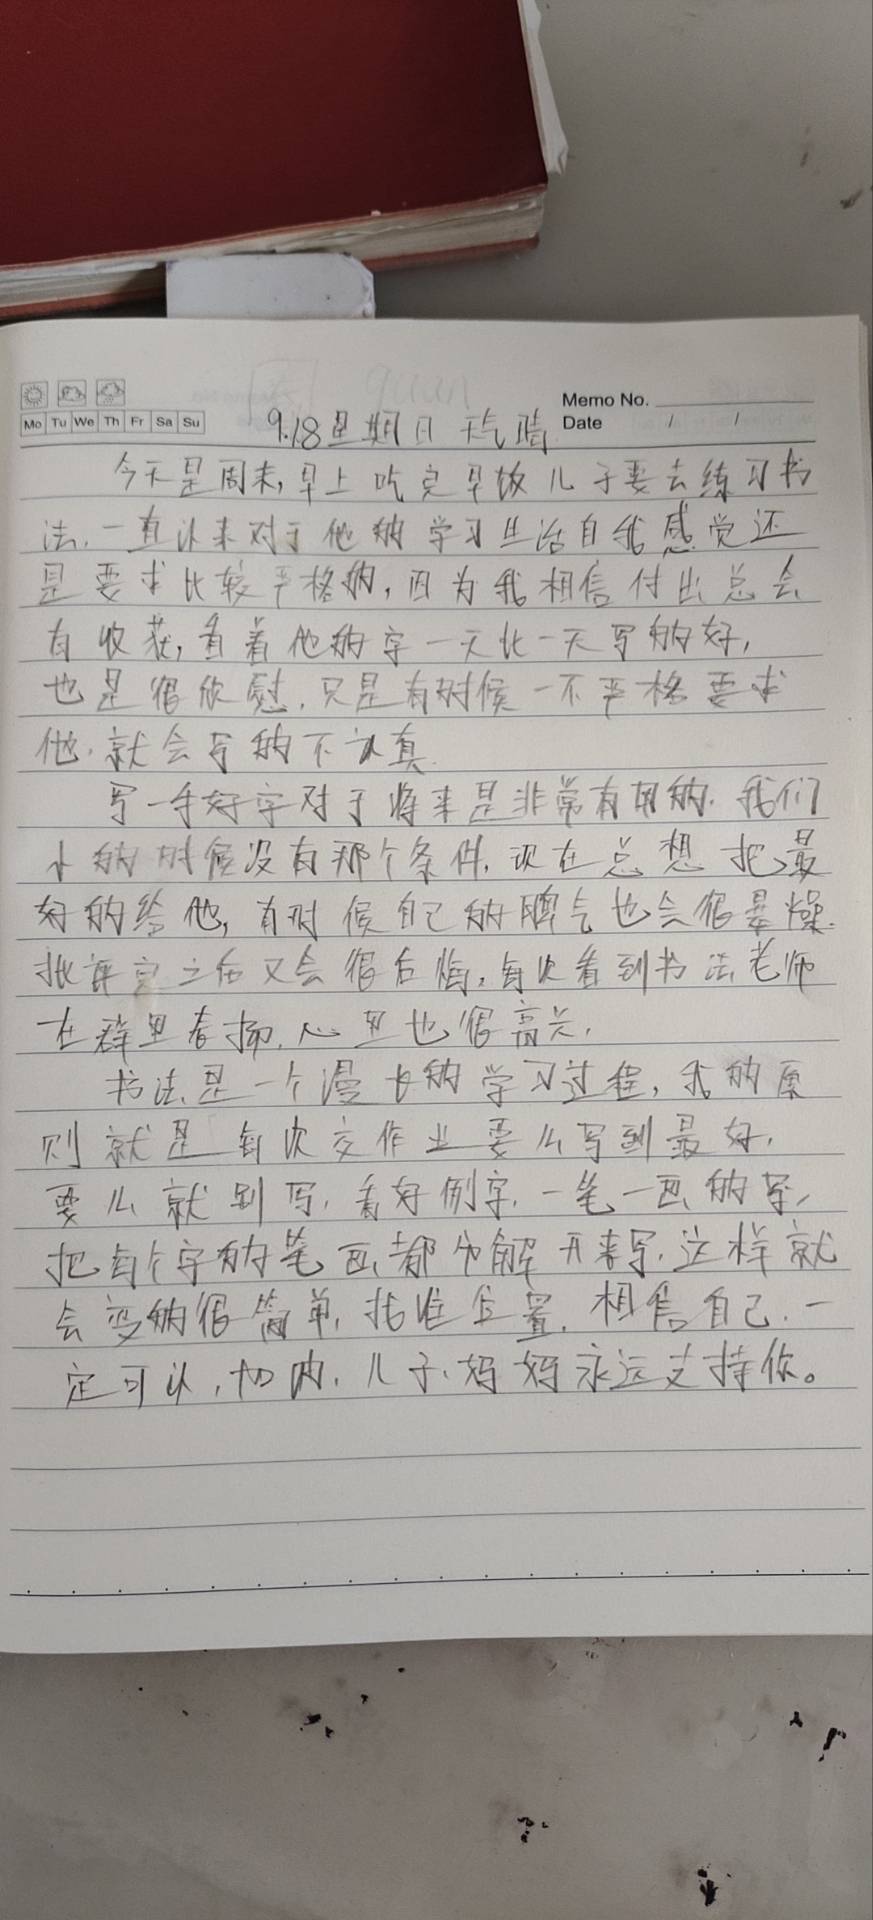 Memo No.
Mo Tu We Th Fr Sa Su
Date / /
9.18星期日 天气晴
今天是周末,早上吃完早饭儿子要去练习书
法,一直以来对于他的学习生活自我感觉还
是要求比较严格的,因为我相信付出总会
有收获,看着他的字一天比一天写的好,
也是很欣慰,只是有时候一不严格要求
他,就会写的不认真.
写一手好字对于将来是非常有用的.我们
小的时候没有那个条件,现在总想把最
好的给他,有时候自己的脾气也会很暴燥.
批评完之后又会很后悔,每次看到书法老师
在群里表扬,心里也很高兴,
书法是一个漫长的学习过程,我的原
则就是每次交作业要么写到最好,
要么就别写,看好例字,一笔一画的写,
把每个字的笔画都分解开来写,这样就
会变的很简单,找准位置,相信自己,一
定可以,加油,儿子,妈妈永远支持你。